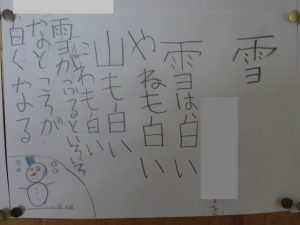 雪
雪は、白い
やねも白い
山も白い
にわも白い
雪がふるといろいろ
なところが
白くなる